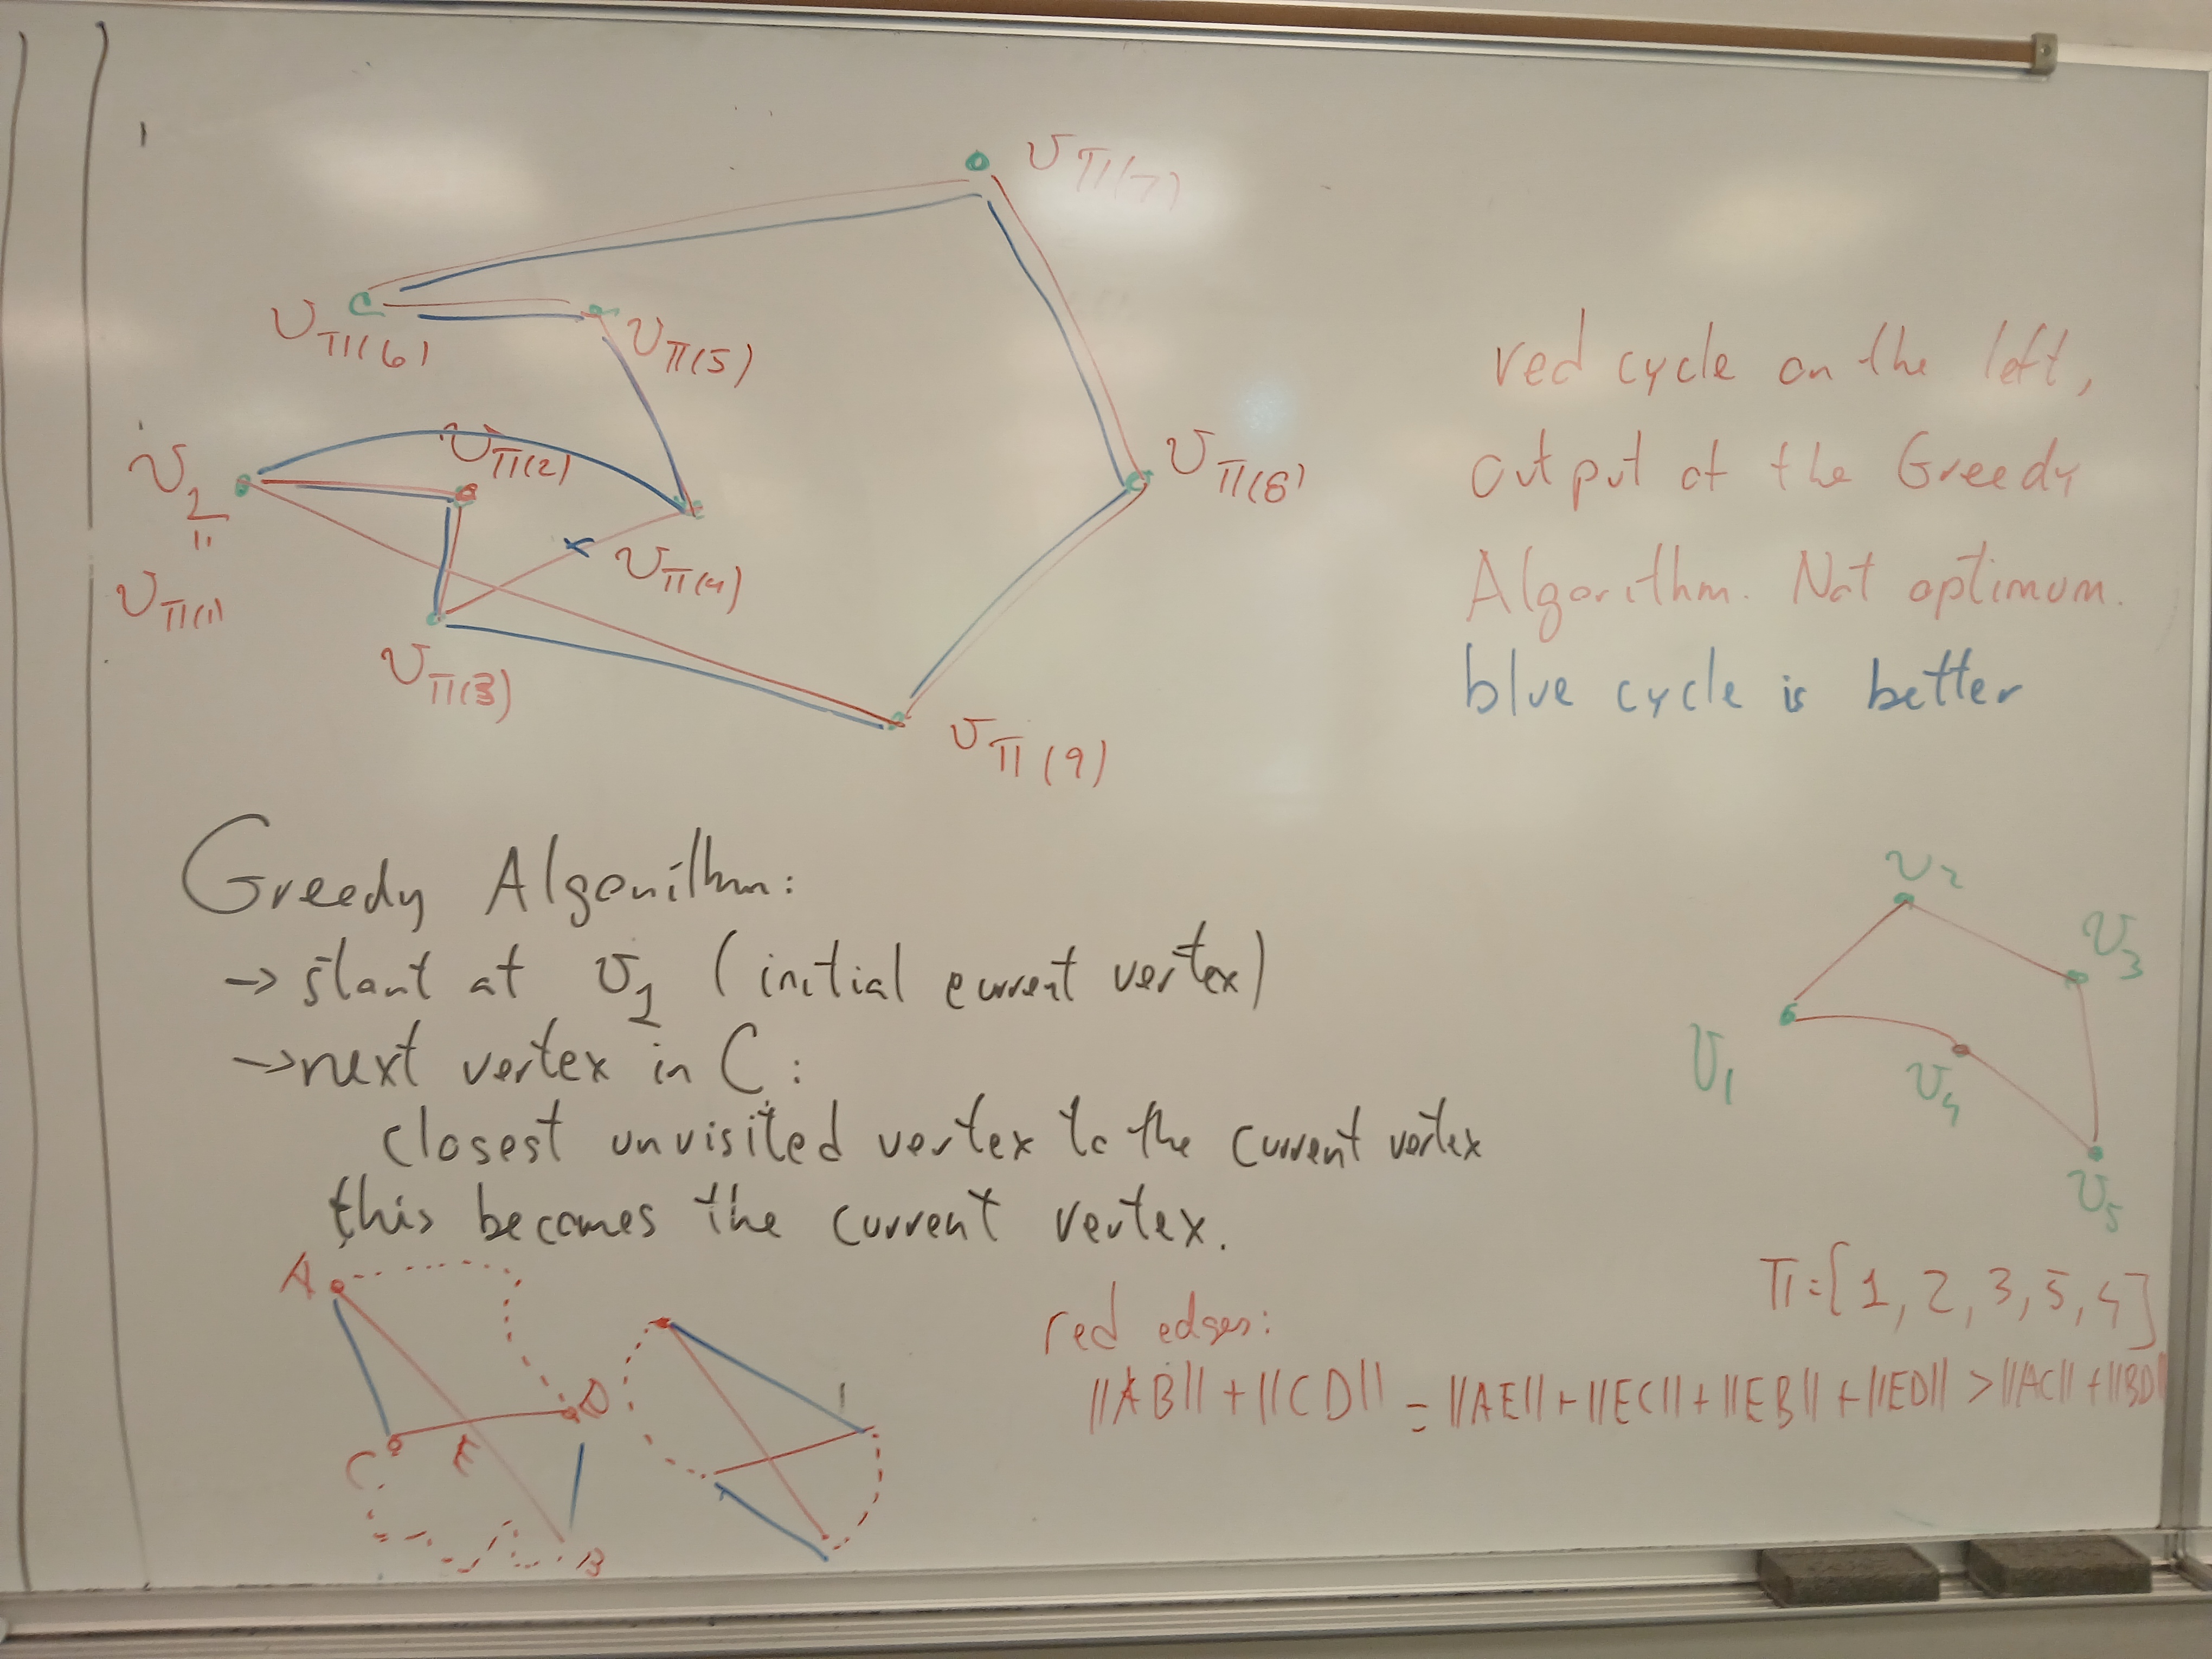 v_π(7)
v_π(6)
v_π(5)
v_π(2)
v_1
=
v_π(1)
v_π(8)
v_π(4)
v_π(3)
v_π(9)
red cycle on the left,
output of the Greedy
Algorithm. Not optimum.
blue cycle is better
Greedy Algorithm:
→ start at v_1 (initial current vertex)
→ next vertex in C:
closest unvisited vertex to the current vertex
this becomes the current vertex.
v_2
v_3
v_1
v_4
v_5
π=[1, 2, 3, 5, 4]
A
D
C
E
B
red edges:
||AB|| + ||CD|| = ||AE|| + ||EC|| + ||EB|| + ||ED|| > ||AC|| + ||BD||